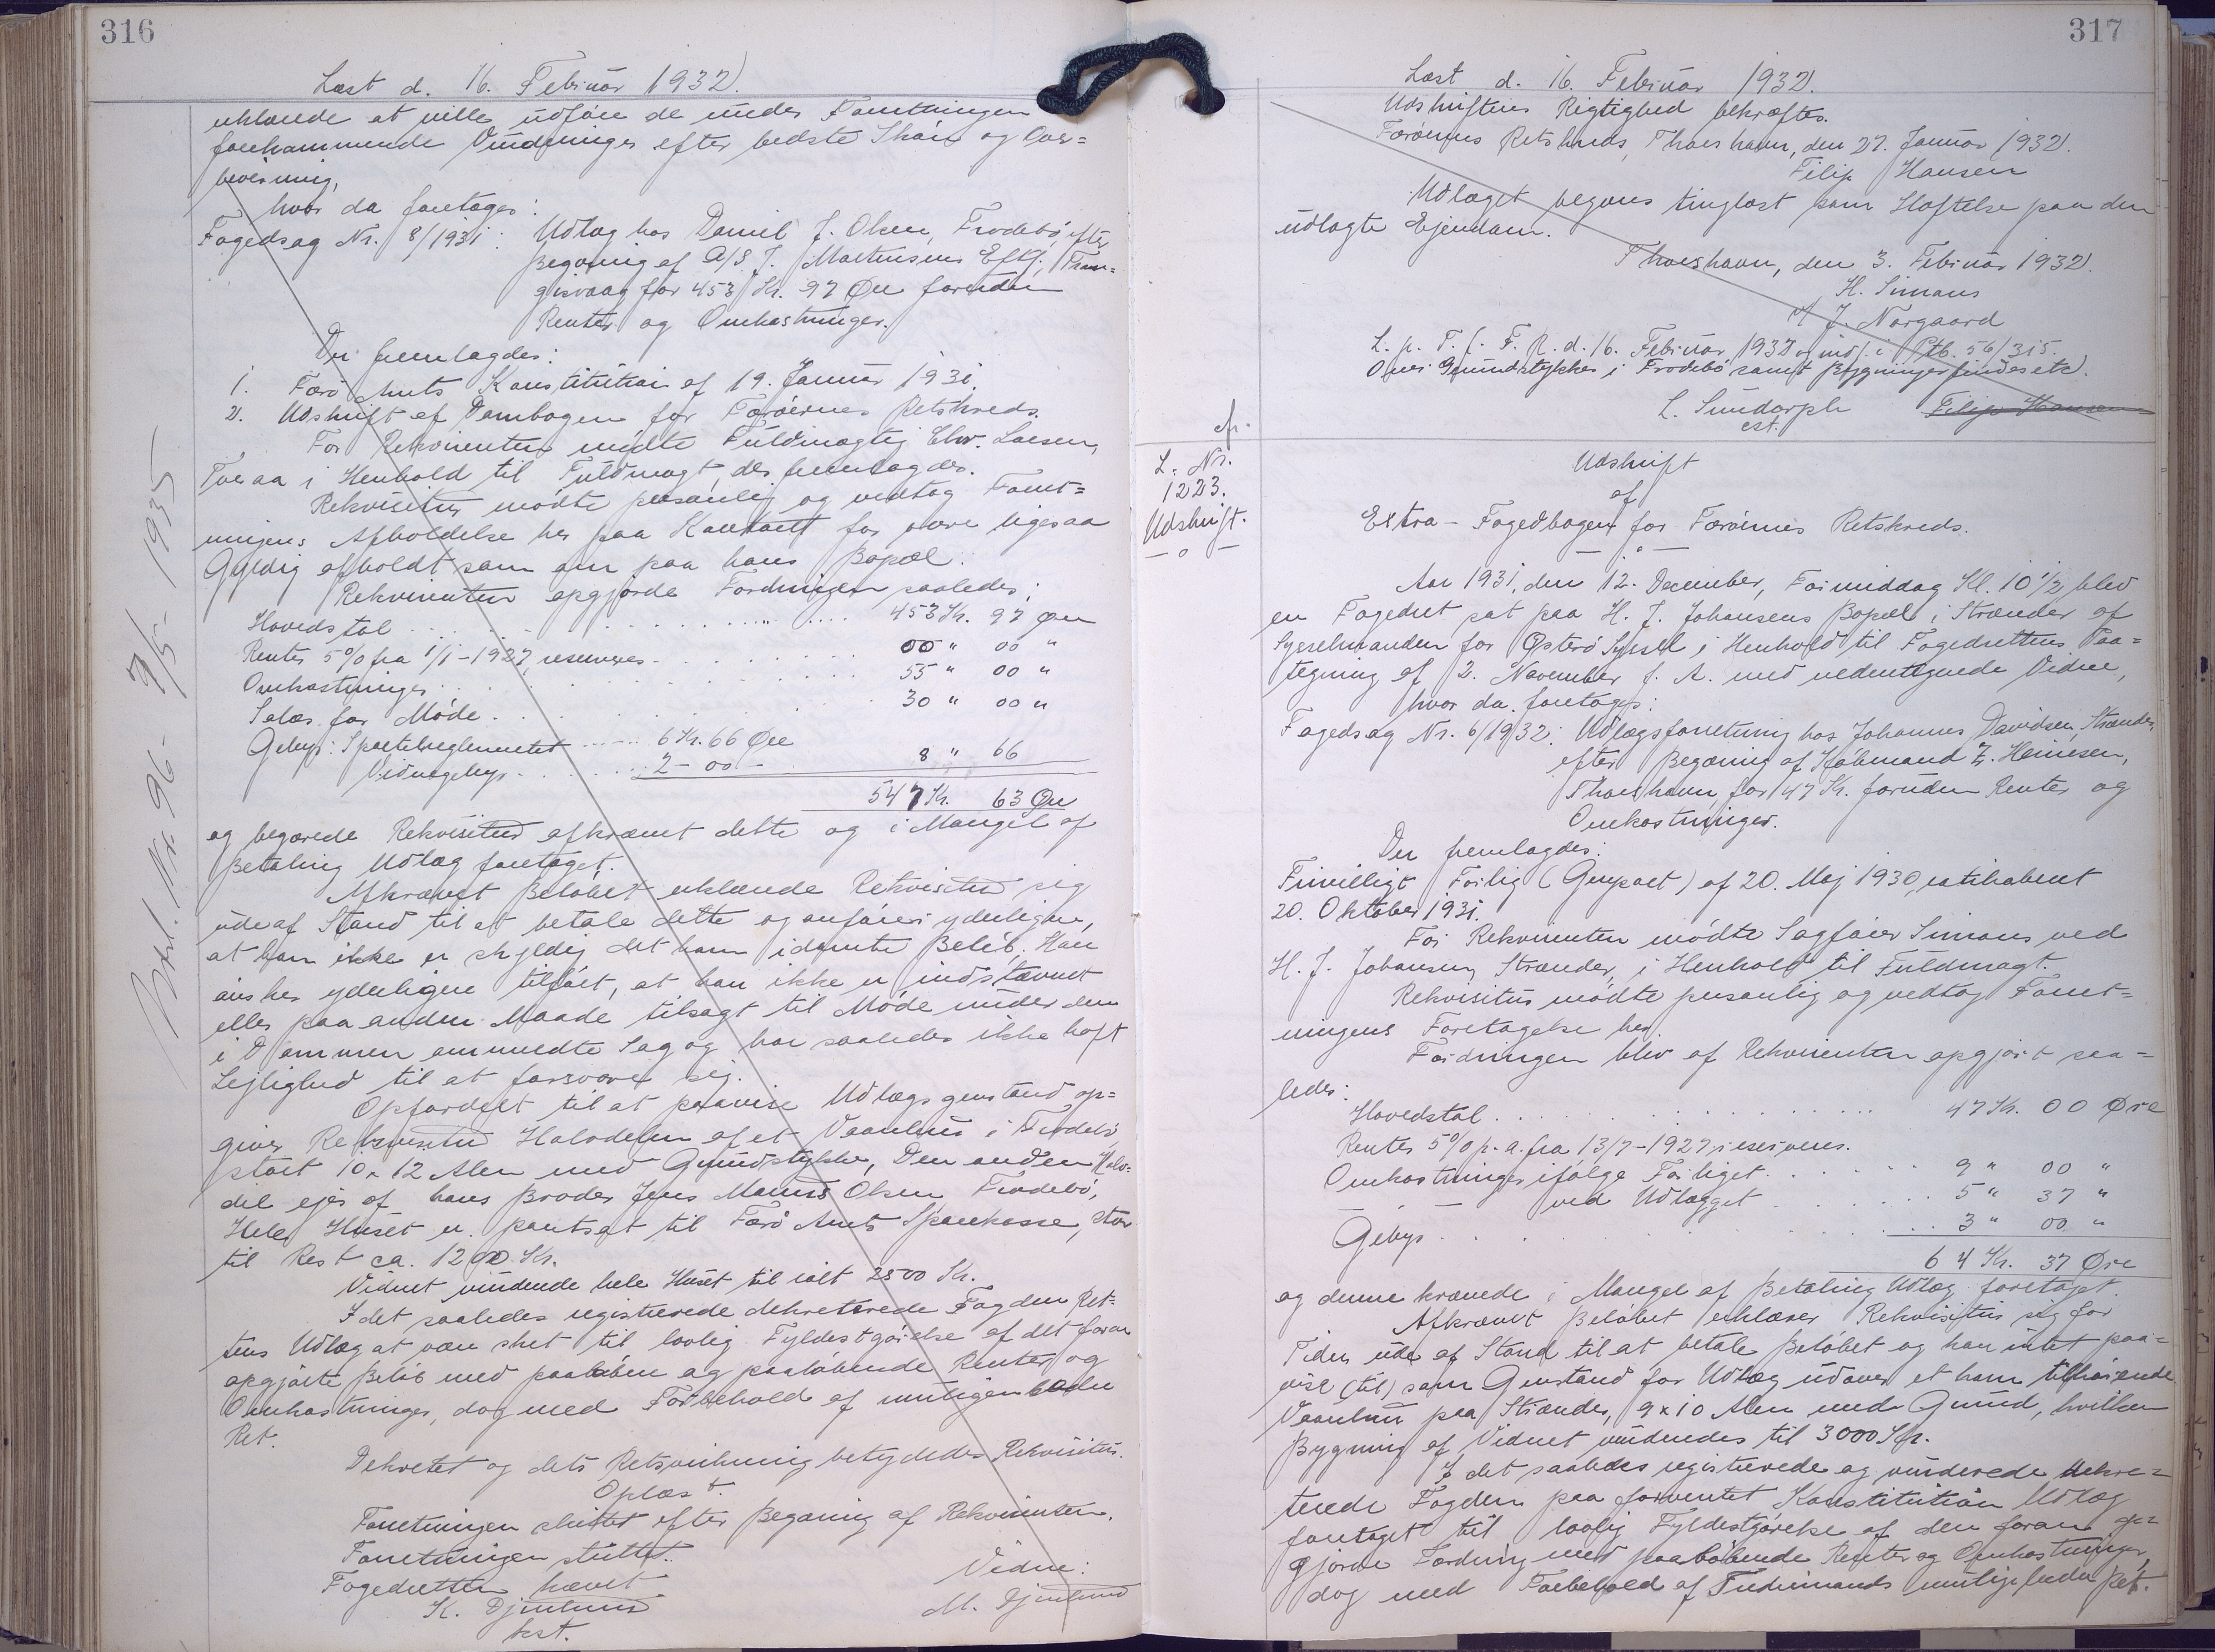 316
Læst d. 16. Februar 1932.
erklærede at ville udføre de under Forretningen
forekommende Vurderinger efter bedste Skøn og Over=
bevisning,
hvor da foretoges:
Fogedsag Nr. 8/1931: Udlæg hos Daniel J. Olsen, Frodebø, efter
Begæring af A/S. J. Mortensens Eftf., Tran=
gisvaag for 453 Kr. 97 Øre foruden
Renter og Omkostninger.
Der fremlagdes:
1. Færø Amts Konstitution af 19. Januar 1931.
2. Udskrift af Dombogen for Færøernes Retskreds.
For Rekvirenten mødte Fuldmægtig Chr. Larsen,
Tveraa i Henhold til Fuldmagt, der fremlagdes.
Rekvisitus mødte personlig og vedtog Forret=
ningens Afholdelse her paa Kontoret for være ligesaa
Gyldig afholdt som om paa hans Bopæl.
Rekvirenten opgjorde Fordringen saaledes:
Hovedstol 453 Kr. 97 Øre
Renter 5% fra 1/1-1927, reserveres 00 " 00 "
Omkostninger 55 " 00 "
Salær for Møde 30 " 00 "
Gebyr: Sportelreglementet 6 Kr. 66 Øre
Vidnegebyr 2 - 00 - 8 " 66
547 Kr. 63 Øre
og begærede Rekvisitus afkrævet dette og i Mangel af
Betaling Udlæg foretaget.
Afkrævet Beløbet erklærede Rekvisitus sig
ude af Stand til at betale dette og anfører yderligere,
at han ikke er skyldig det ham idømte Beløb. Han
ønsker yderligere tilført, at han ikke er indstævnet
eller paa anden Maade tilsagt til Møde under den
i Dommen ommeldte Sag og har saaledes ikke haft
Lejlighed til at forsvare sig.
Opfordret til at paavise Udlægsgenstand op=
giver Rekvisitus Halvdelen af et Vaanhus i Frodebø
stort 10 x 12 Alen med Grundstykke, Den anden Halv=
del ejes af hans Broder Jens Maurs Olsen Frodebø,
Hele Huset er pantsat til Færø Amts Sparekasse, stor
til Rest ca. 1200 Kr.
Vidnet vurderede hele Huset til ialt 2500 Kr.
I det saaledes registrerede dekreterede Fogden Ret=
tens Udlæg at være sket til lovlig Fyldestgørelse af det foran
opgjorte Beløb med paaløbne og paaløbende Renter og
Omkostninger, dog med Forbehold af muligen bedre
Ret.
Dekretet og dets Retsvirkning betydedes Rekvisitus.
Oplæst.
Forretningen sluttet efter Begæring af Rekvirenten.
Forretningen sluttet.
Fogedretten hævet.
K. Djurhuus
kst.
Vidne:
M. Djurhuus
Nr. 96 - 7/5 - 1935
317
Læst d. 16. Februar 1932.
Udskriftens Rigtighed bekræftes.
Færøernes Retskreds, Thorshavn, den 27. Januar 1932.
Filip Hansen
Udlæget begæres tinglæst som Hæftelse paa den
udlagte Ejendom.
Thorshavn, den 3. Februar 1932.
H. Simons
J. Nørgaard
L. p. T. f. F. R. d. 16. Februar 1932 og indf. i Ptb. 56/315.
Over Grundstykker i Frodebø samt Bygninger findes etc.
L. Sundorph Filip Hansen
cst.
cfr.
L. Nr.
1223.
Udskrift.
— o —
Udskrift
af
Extra-Fogedbogen for Færøernes Retskreds.
— o —
Aar 1931, den 12. December, Formiddag Kl. 10 1/2, blev
en Fogedret sat paa H. J. Johansens Bopæl i Strænder af
Sysselmanden for Østerø Syssel i Henhold til Fogedrettens Paa=
tegning af 2. November f. A. med nedentegnede Vidne,
hvor da foretoges:
Fogedsag Nr. 6/1932: Udlægsforretning hos Johannes Davidsen, Strænder,
efter Begæring af Købmand Z. Heinesen,
Thorshavn, for 47 Kr. foruden Renter og
Omkostninger.
Der fremlagdes:
Frivilligt Forlig (Genpart) af 20. Maj 1930, ratihaberet
20. Oktober 1931.
For Rekvirenten mødte Sagfører Simons ved
H. J. Johansen, Strænder, i Henhold til Fuldmagt.
Rekvisitus mødte personlig og vedtog Forret=
ningens Foretagelse her.
Fordringen blev af Rekvirenten opgjort saa=
ledes:
Hovedstol 47 Kr. 00 Øre
Renter 5% p. a. fra 13/7-1927, reserveres.
Omkostninger ifølge Forliget 9 " 00 "
— ved Udlægget 5 " 37 "
Gebyr 3 " 00 "
64 Kr. 37 Øre
og denne krævede i Mangel af Betaling Udlæg foretaget.
Afkrævet Beløbet erklærer Rekvisitus sig for
Tiden ude af Stand til at betale Beløbet og kan intet paa=
vise (til) som Genstand for Udlæg udover et ham tilhørende
Vaanhus paa Strænder, 9 x 10 Alen med Grund, hvilken
Bygning af Vidnet vurderedes til 3000 Kr.
I det saaledes registrerede og vurderede dekre=
terede Fogden paa forventet Konstitution Udlæg
foretaget til lovlig Fyldestgørelse af den foran op=
gjorde Fordring med paaløbende Renter og Omkostninger,
dog med Forbehold af Tredjemands mulige bedre Ret.